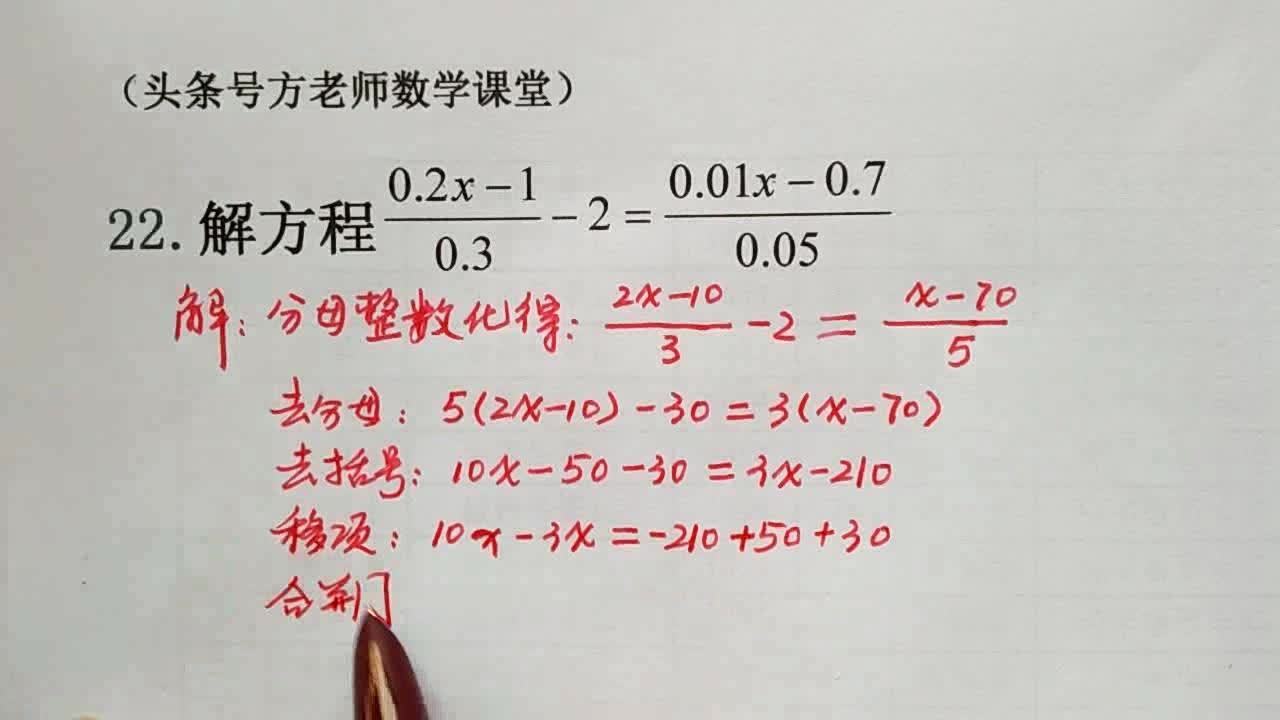 （头条号方老师数学课堂）
22.解方程 (0.2x-1)/0.3 - 2 = (0.01x-0.7)/0.05
解：分母整数化得：(2x-10)/3 - 2 = (x-70)/5
去分母：5(2x-10)-30=3(x-70)
去括号：10x-50-30=3x-210
移项：10x-3x=-210+50+30
合并